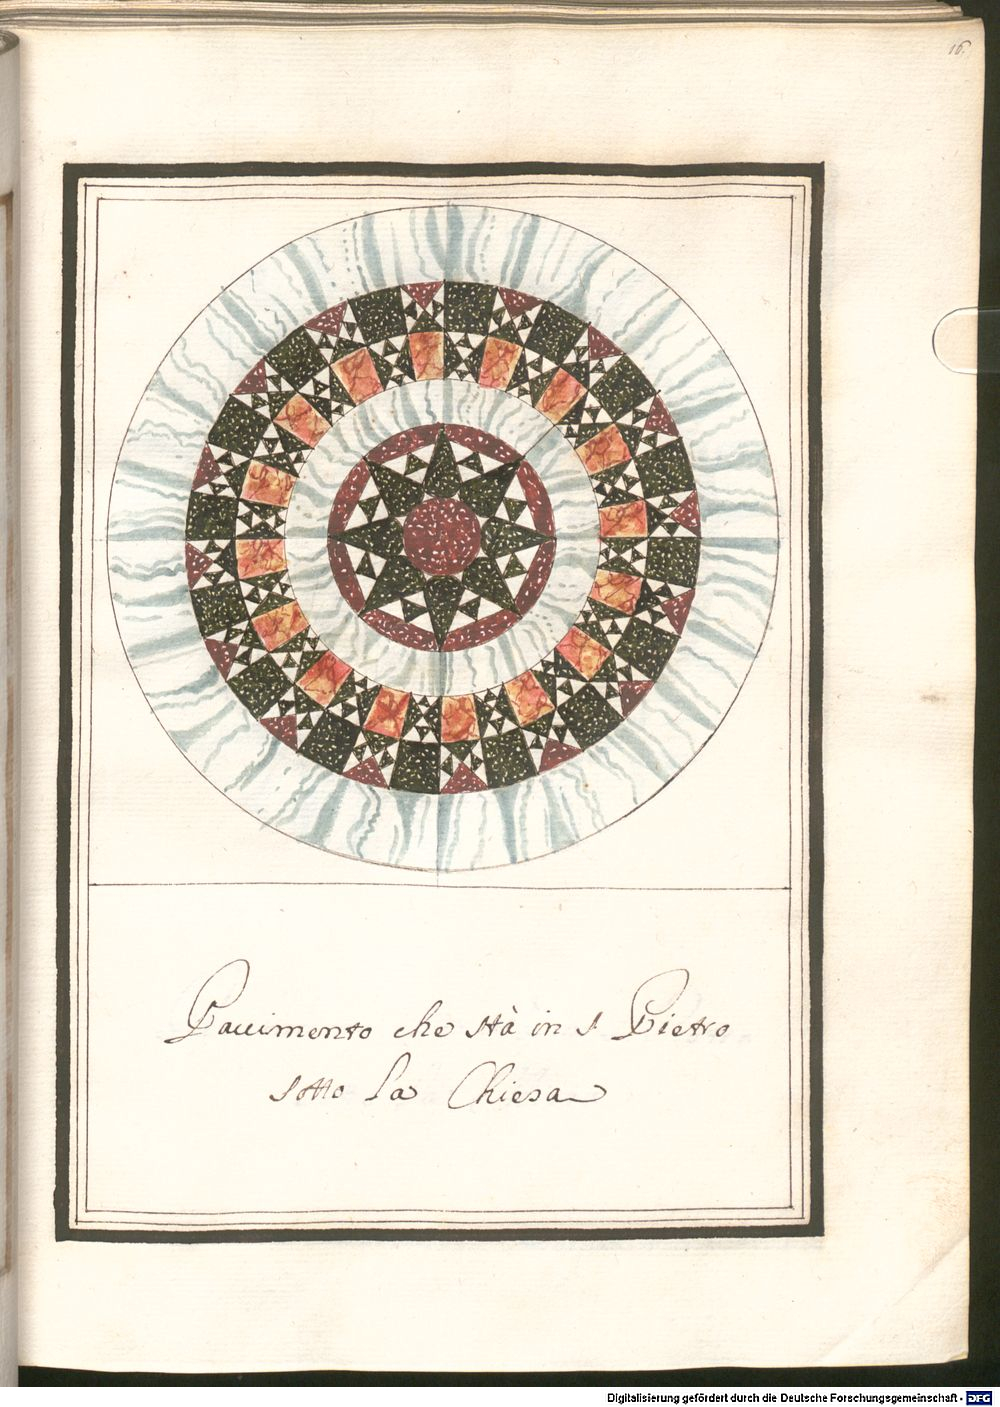 16.
Pauimento che stà in S Pietro
sotto la Chiesa
Digitalisierung gefördert durch die Deutsche Forschungsgemeinschaft - DFG